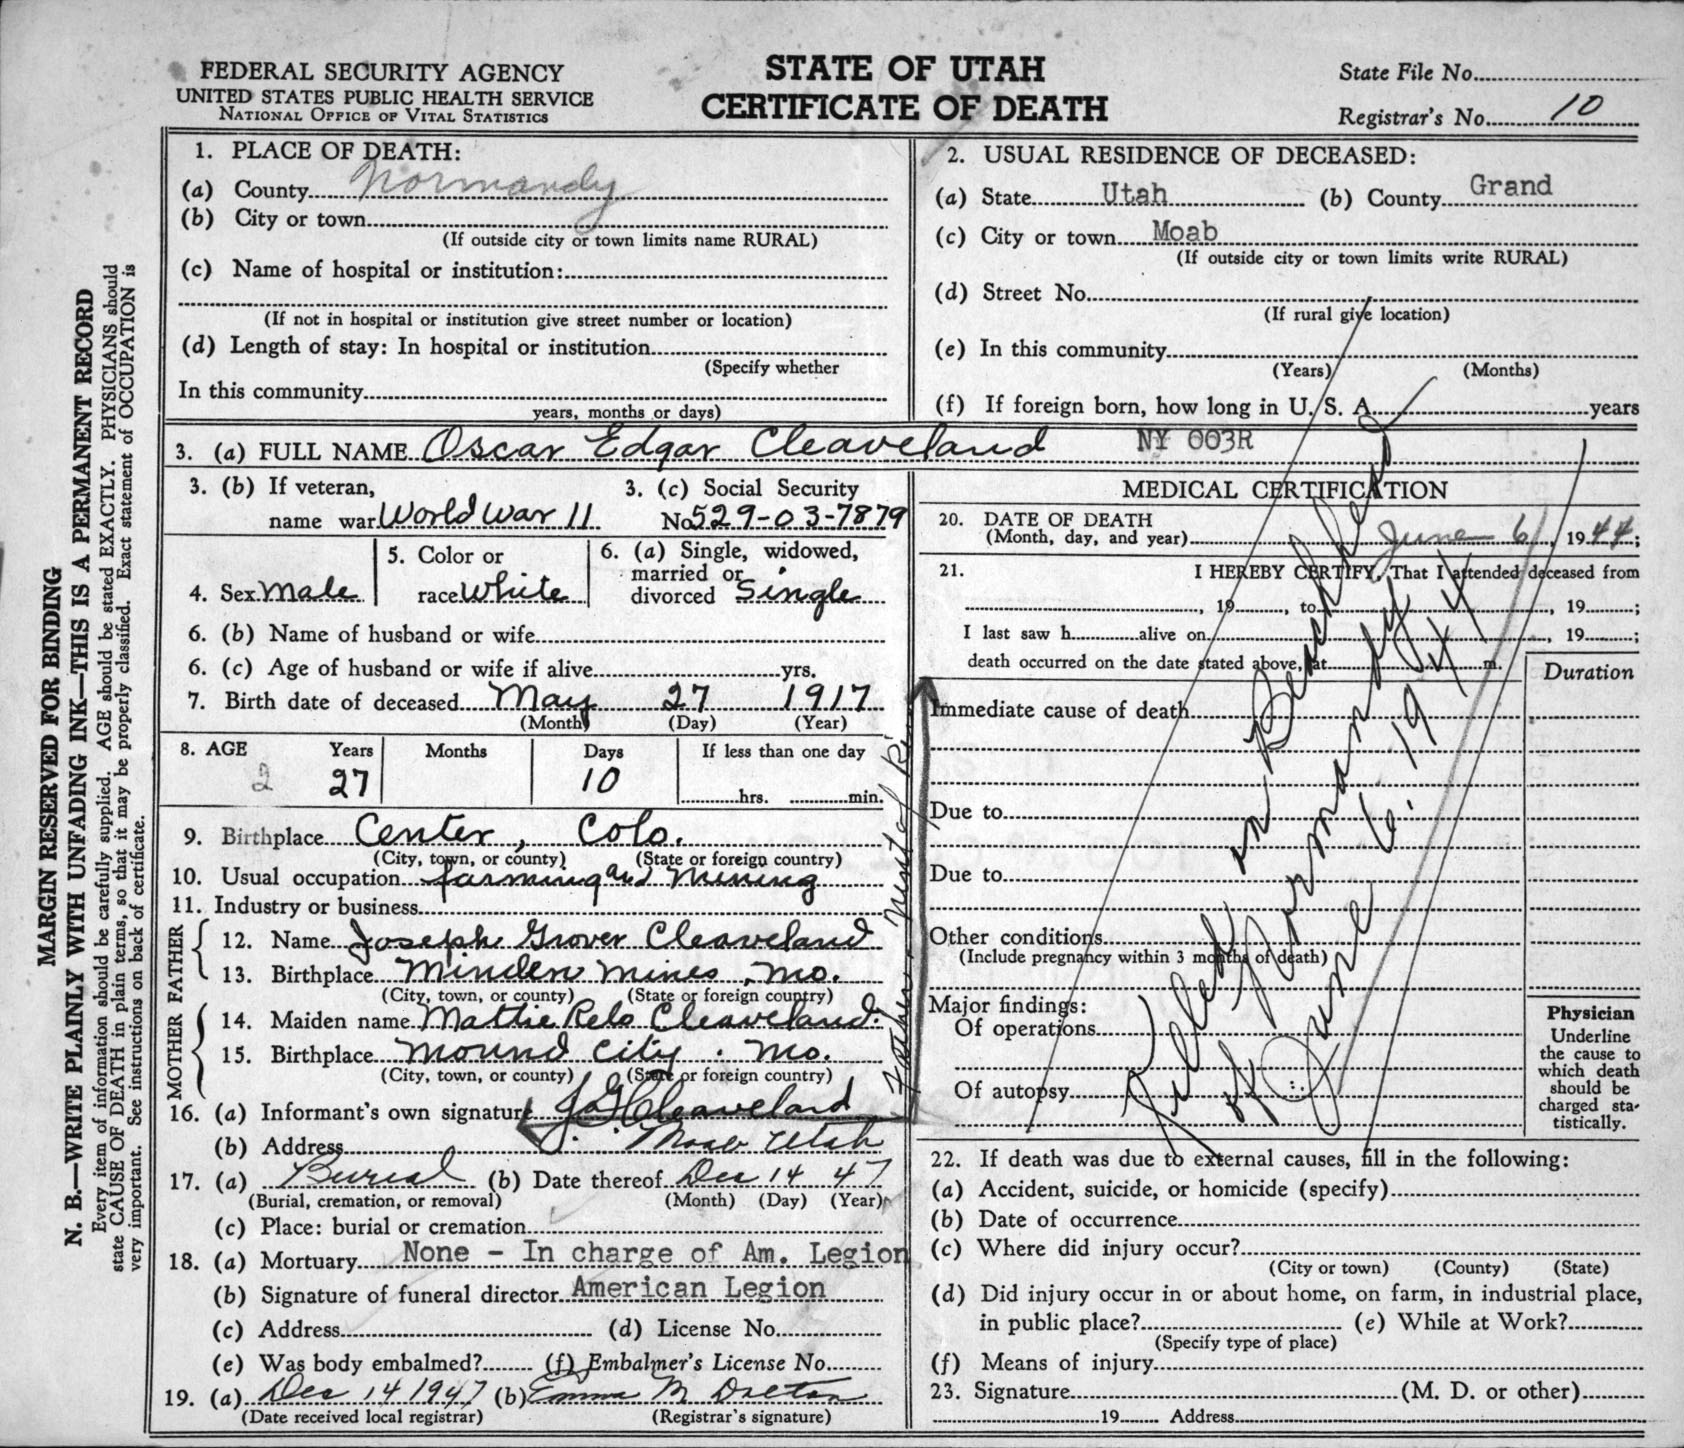 FEDERAL SECURITY AGENCY
UNITED STATES PUBLIC HEALTH SERVICE
NATIONAL OFFICE OF VITAL STATISTICS
STATE OF UTAH
CERTIFICATE OF DEATH
State File No.
Registrar's No. 10
MARGIN RESERVED FOR BINDING
N. B.—WRITE PLAINLY WITH UNFADING INK—THIS IS A PERMANENT RECORD
Every item of information should be carefully supplied. AGE should be stated EXACTLY. PHYSICIANS should
state CAUSE OF DEATH in plain terms, so that it may be properly classified. Exact statement of OCCUPATION is
very important. See instructions on back of certificate.
1. PLACE OF DEATH:
(a) County Normandy
(b) City or town
(If outside city or town limits name RURAL)
(c) Name of hospital or institution:
(If not in hospital or institution give street number or location)
(d) Length of stay: In hospital or institution
(Specify whether
In this community
years, months or days)
2. USUAL RESIDENCE OF DECEASED:
(a) State Utah (b) County Grand
(c) City or town Moab
(If outside city or town limits write RURAL)
(d) Street No.
(If rural give location)
(e) In this community
(Years) (Months)
(f) If foreign born, how long in U. S. A. years
3. (a) FULL NAME Oscar Edgar Cleaveland NY 003R
3. (b) If veteran,
name war World War II
3. (c) Social Security
No. 529-03-7879
4. Sex Male
5. Color or
race White
6. (a) Single, widowed,
married or
divorced Single
6. (b) Name of husband or wife
6. (c) Age of husband or wife if alive yrs.
7. Birth date of deceased May 27 1917
(Month) (Day) (Year)
8. AGE Years Months Days If less than one day
2 27 10 hrs. min.
9. Birthplace Center, Colo.
(City, town, or county) (State or foreign country)
10. Usual occupation farming and Mining
11. Industry or business
FATHER
12. Name Joseph Grover Cleaveland
13. Birthplace Minden Mines, Mo.
(City, town, or county) (State or foreign country)
MOTHER
14. Maiden name Mattie Relo Cleaveland.
15. Birthplace Mound City. Mo.
(City, town, or county) (State or foreign country)
16. (a) Informant's own signature J G Cleaveland
(b) Address Moab Utah
17. (a) Burial (b) Date thereof Dec 14 47
(Burial, cremation, or removal) (Month) (Day) (Year)
(c) Place: burial or cremation
18. (a) Mortuary None - In charge of Am. Legion
(b) Signature of funeral director American Legion
(c) Address (d) License No.
(e) Was body embalmed? (f) Embalmer's License No.
19. (a) Dec 14 1947 (b) Emma M Dalton
(Date received local registrar) (Registrar's signature)
Father
MEDICAL CERTIFICATION
20. DATE OF DEATH
(Month, day, and year) June 6, 1944;
21. I HEREBY CERTIFY, That I attended deceased from
, 19 , to , 19 ;
I last saw h alive on , 19 ;
death occurred on the date stated above, at m.
Duration
Immediate cause of death
Due to
Due to
Other conditions
(Include pregnancy within 3 months of death)
Major findings:
Of operations
Of autopsy
Killed on Beachhead
of Normandy
June 6. 1944
Physician
Underline
the cause to
which death
should be
charged sta-
tistically.
22. If death was due to external causes, fill in the following:
(a) Accident, suicide, or homicide (specify)
(b) Date of occurrence
(c) Where did injury occur?
(City or town) (County) (State)
(d) Did injury occur in or about home, on farm, in industrial place,
in public place? (e) While at Work?
(Specify type of place)
(f) Means of injury
23. Signature (M. D. or other)
19 Address